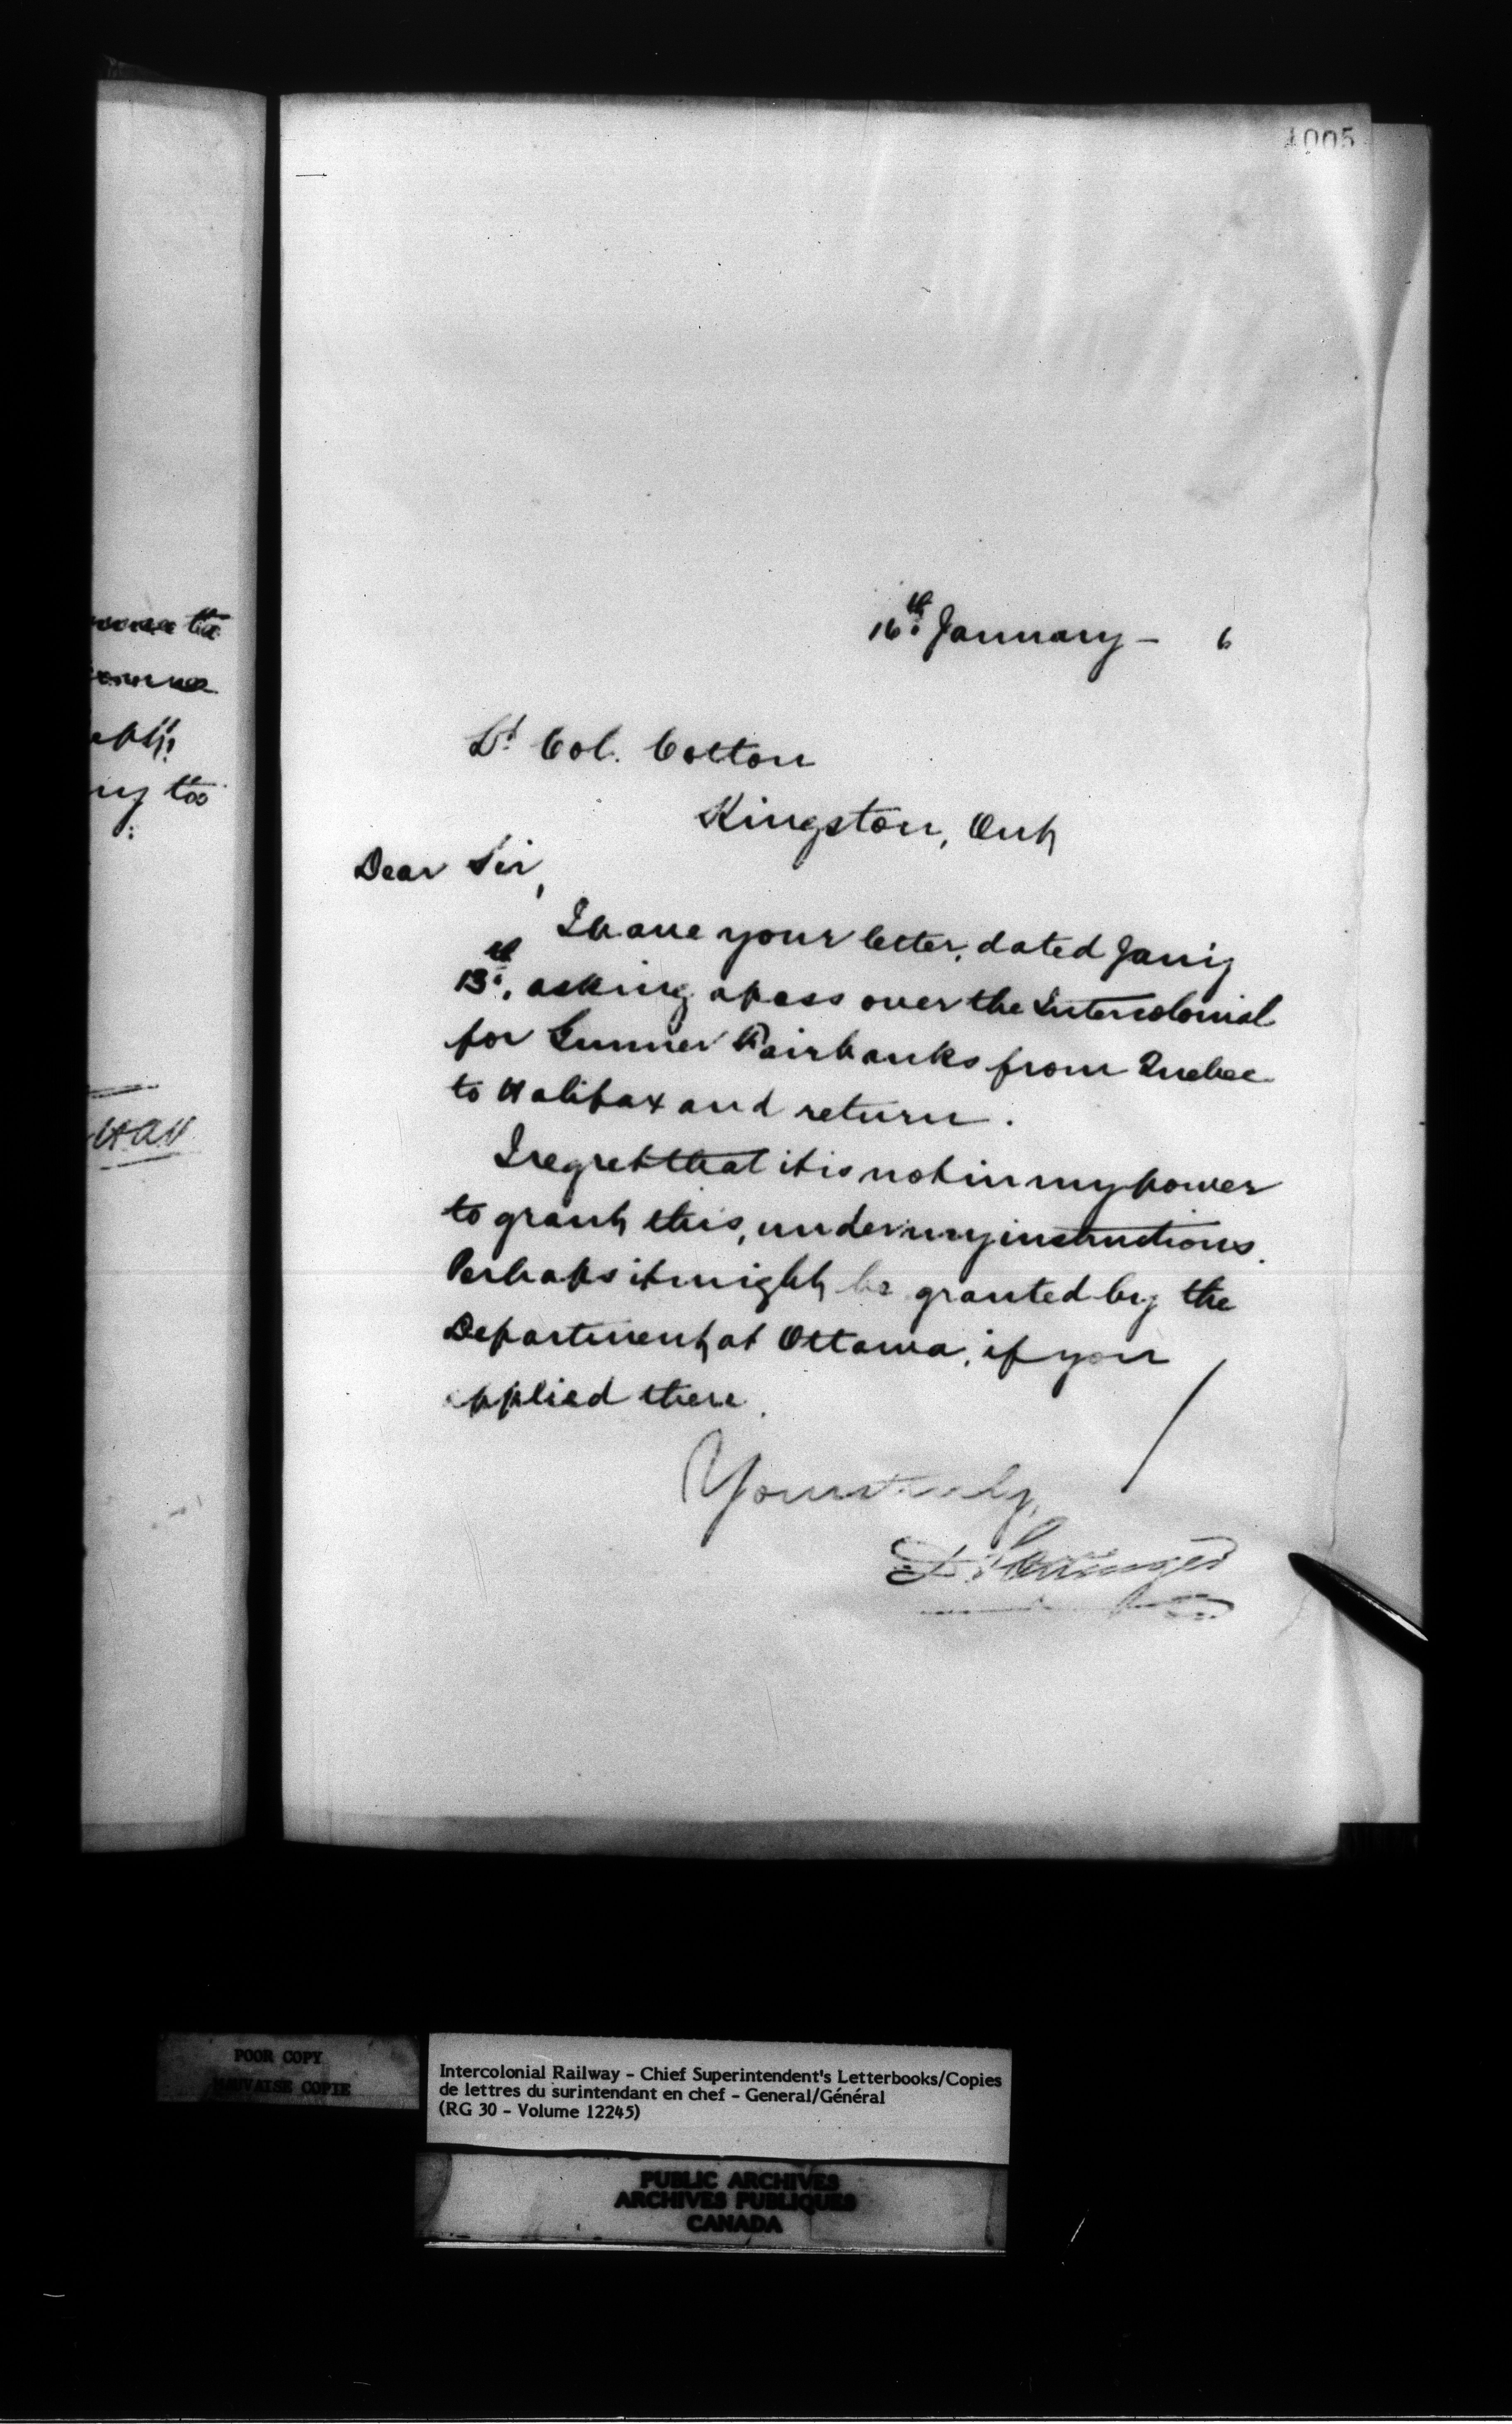 1005
16th January - 6
Lt Col. Cotton
Kingston, Ont
Dear Sir,
I have your letter, dated Jan'y
13th, asking a pass over the Intercolonial
for Gunner Fairbanks from Quebec
to Halifax and return.
I regret that it is not in my power
to grant this, under my instructions.
Perhaps it might be granted by the
Department at Ottawa, if you
applied there.
Yours truly,
D Pottinger
POOR COPY
MAUVAISE COPIE
Intercolonial Railway - Chief Superintendent's Letterbooks/Copies
de lettres du surintendant en chef - General/Général
(RG 30 - Volume 12245)
PUBLIC ARCHIVES
ARCHIVES PUBLIQUES
CANADA